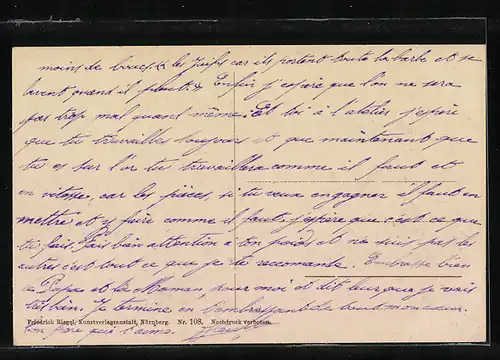 moins de boue, & les Juifs car ils portent toute la barbe et se
lavent quand il pleut. Enfin j'espère que l'on ne sera
pas trop mal quand même. Et toi à l'atelier j'espère
que tu travailles toujours et que maintenant que
tu es sur l'or tu travailleras comme il faut et
en vitesse, car les pièces, si tu veux en gagner il faut en
mettre et y faire comme il faut, j'espère que c'est ce que
tu fais, fais bien attention à ton poids et ne suis pas les
autres c'est tout ce que je te recomante. Embrasse bien
le Papa et la Maman pour moi et dit leur que je vais
très bien. Je termine en t'embrassant de tout mon cœur.
Friedrich Riegel, Kunstverlagsanstalt, Nürnberg. Nr. 108. Nachdruck verboten.
ton frère qui t'aime.